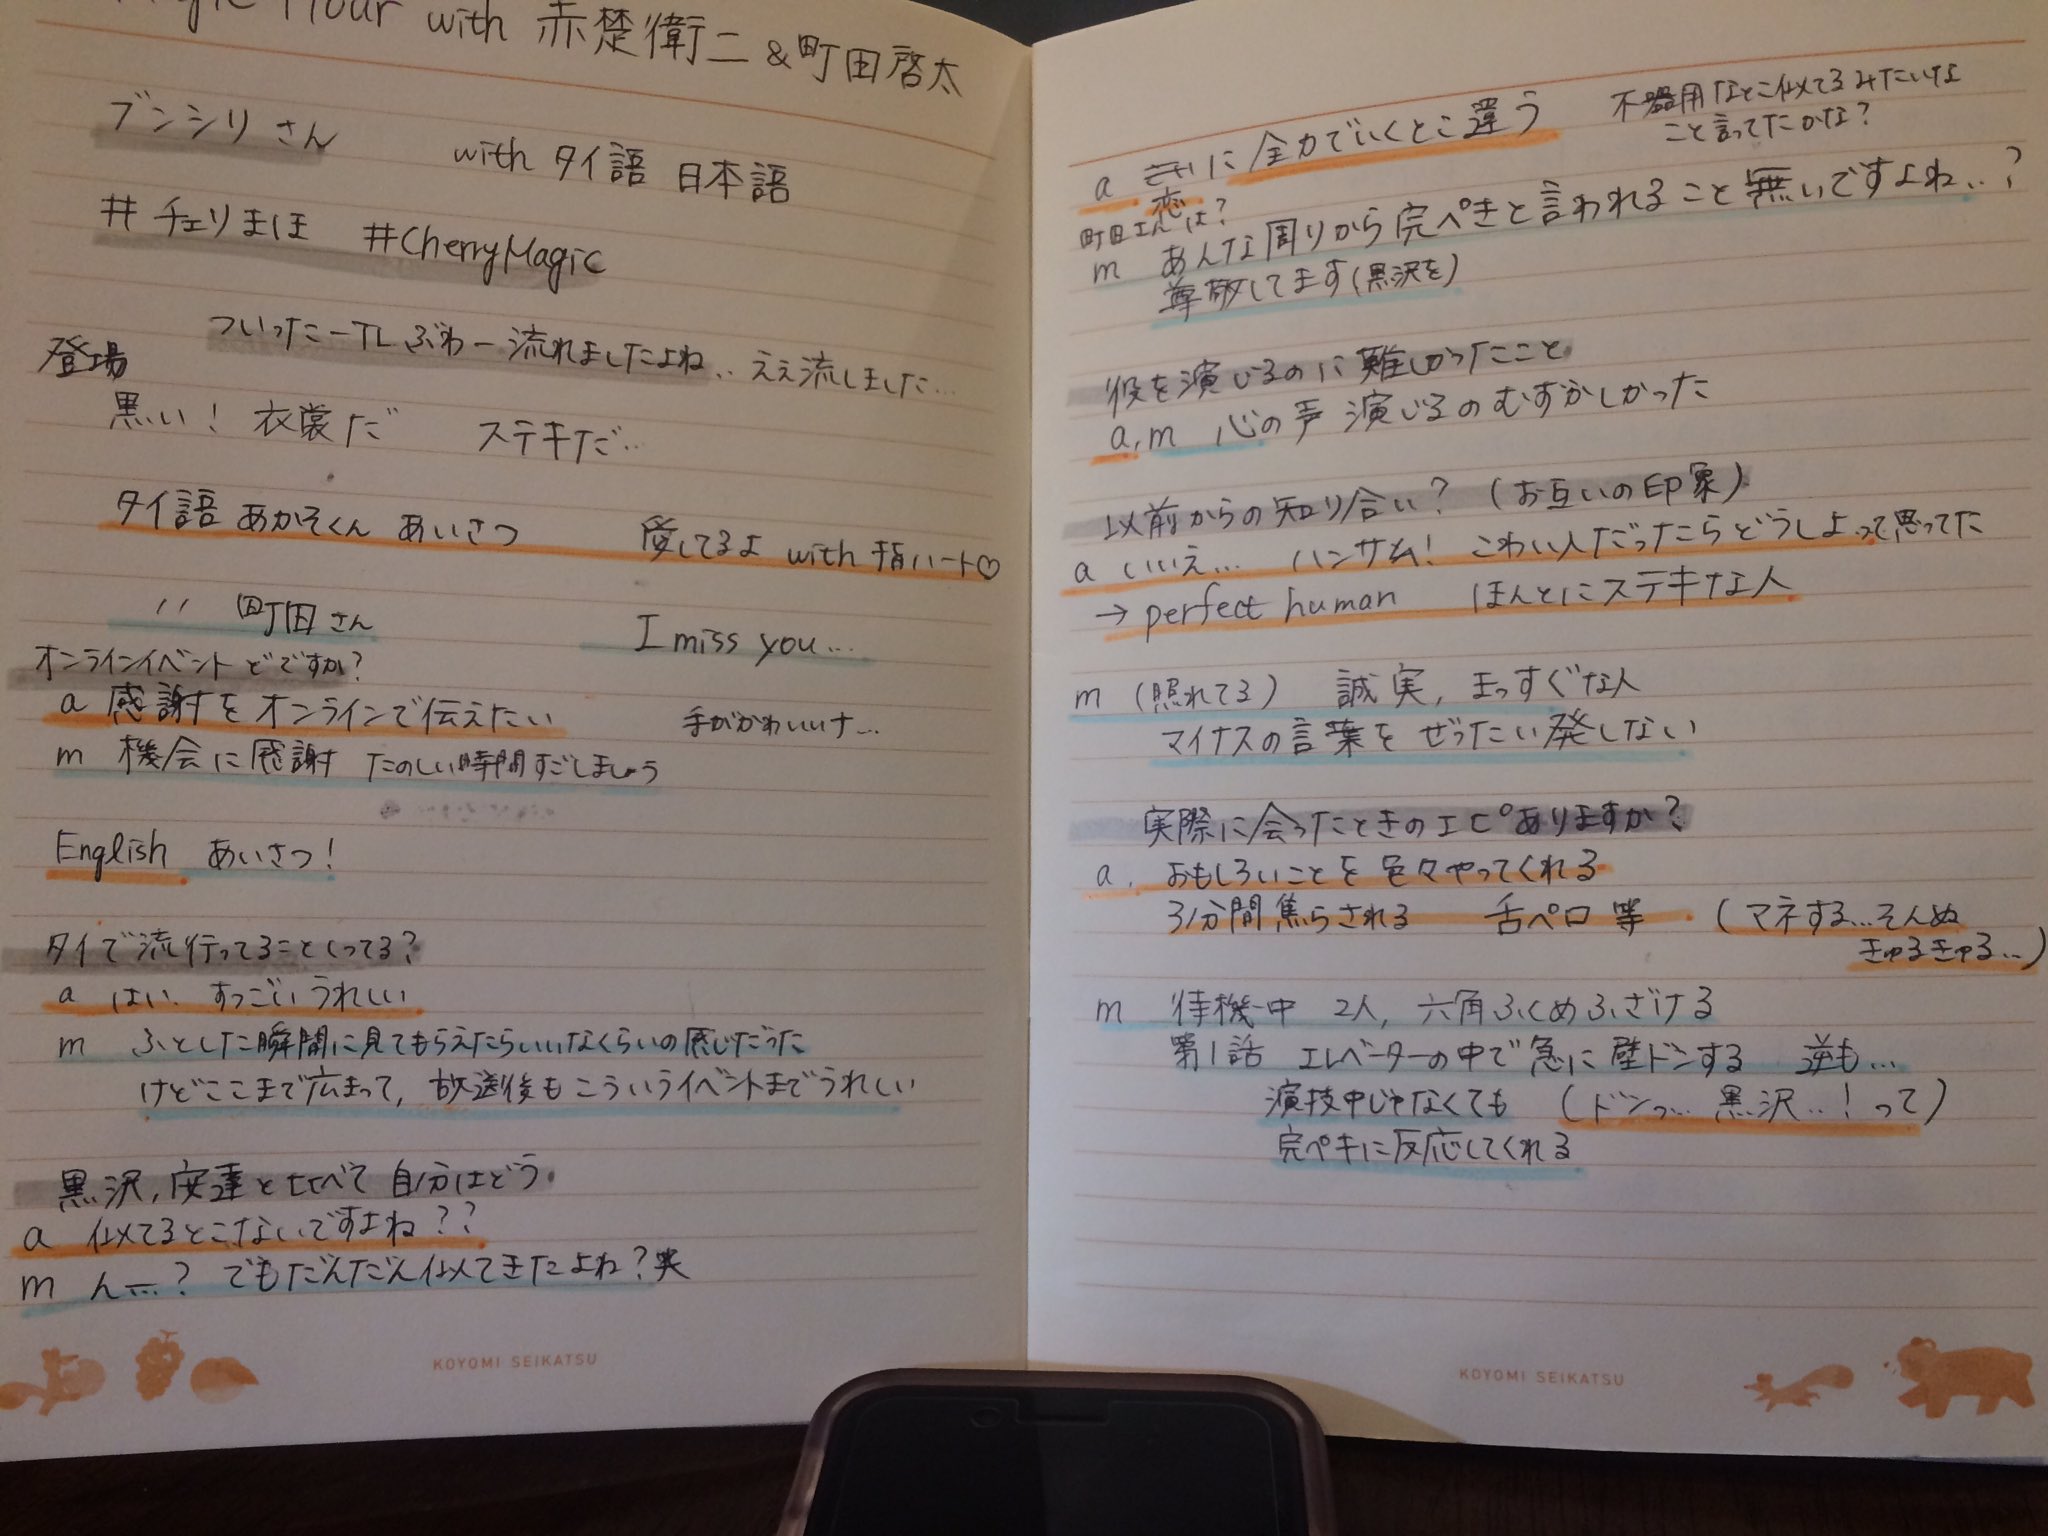 Hour with 赤楚衛二 & 町田啓太
ブンシリさん with タイ語 日本語
#チェリまほ #CherryMagic
ついったーTLぶわー流れましたよね‥ ええ流しました…
登場
黒い! 衣裳だ ステキだ…
タイ語 あかそくん あいさつ 愛してるよ with 指ハート♡
〃 町田さん I miss you…
オンラインイベントどですか?
a 感謝をオンラインで伝えたい 手がかわいいナ…
m 機会に感謝 たのしい時間すごしましょう
English あいさつ!
タイで流行ってることしってる?
a はい. すっごいうれしい
m ふとした瞬間に見てもらえたらいいなくらいの感じだった
けどここまで広まって, 放送後もこういうイベントまでうれしい
黒沢, 安達と比べて 自分はどう.
a 似てるとこないですよね??
m ん…? でもだんだん似てきたよね?笑
KOYOMI SEIKATSU
不器用なとこ似てるみたいな
こと言ってたかな?
a 恋に全力でいくとこ違う
町田さんは?
m あんな周りから完ぺきと言われること無いですよね‥?
尊敬してます(黒沢を)
役を演じるのに難しかったこと.
a, m 心の声 演じるのむずかしかった
以前からの知り合い? (お互いの印象)
a いいえ… ハンサム! こわい人だったらどうしよって思ってた
→ perfect human ほんとにステキな人
m (照れてる) 誠実, まっすぐな人
マイナスの言葉をぜったい発しない
実際に会ったときのエピありますか?
a. おもしろいことを色々やってくれる
31分間焦らされる 舌ペロ 等. (マネする…そんぬ
きゅるきゅる…)
m 待機中 2人, 六角ふくめふざける
第1話 エレベーターの中で急に壁ドンする 逆も…
演技中じゃなくても (ドンっ… 黒沢‥! って)
完ペキに反応してくれる
KOYOMI SEIKATSU